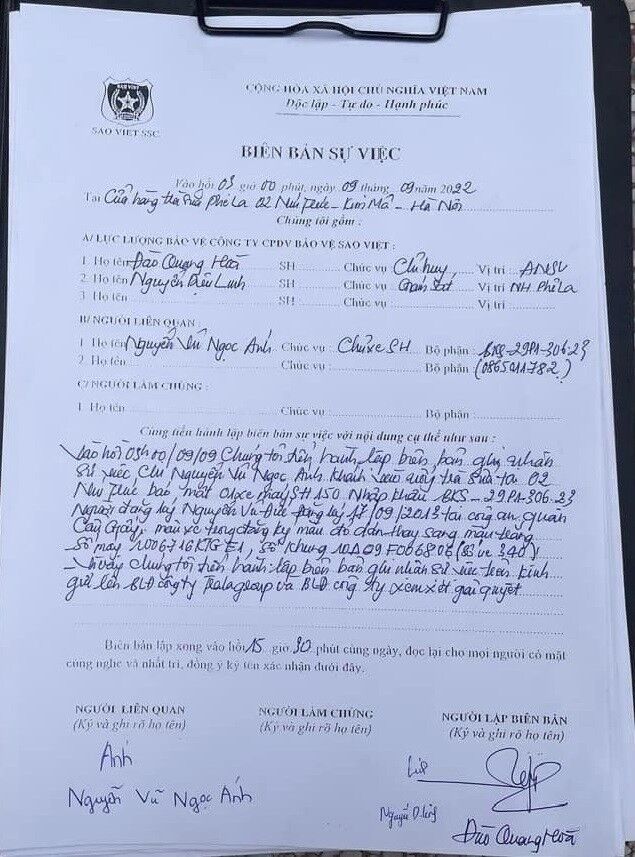 CỘNG HÒA XÃ HỘI CHỦ NGHĨA VIỆT NAM
Độc lập - Tự do - Hạnh phúc
SAO VIET
SAO VIET SSC
BIÊN BẢN SỰ VIỆC
Vào hồi 03 giờ 00 phút, ngày 09 tháng 09 năm 2022
Tại Cửa hàng trà sữa Phê La 02 Núi Trúc - Kim Mã - Hà Nội
Chúng tôi gồm :
A/ LỰC LƯỢNG BẢO VỆ CÔNG TY CPDV BẢO VỆ SAO VIỆT :
1. Họ tên Đào Quang Hoà SH Chức vụ Chỉ huy Vị trí ANSV
2. Họ tên Nguyễn Diệu Linh SH : Chức vụ Giám Sát Vị trí NH Phê La
3. Họ tên SH : Chức vụ Vị trí
B/ NGƯỜI LIÊN QUAN :
1. Họ tên Nguyễn Vũ Ngọc Anh Chức vụ : Chủ xe SH Bộ phận : BKS-29P1-306.23
2. Họ tên Chức vụ : Bộ phận :
C/ NGƯỜI LÀM CHỨNG :
1. Họ tên Chức vụ : Bộ phận :
Cùng tiến hành lập biên bản sự việc với nội dung cụ thể như sau :
Vào hồi 03h00/09/09 Chúng tôi tiến hành lập biên bản ghi nhận
Sự việc, Chị Nguyễn Vũ Ngọc Anh khách vào uống trà sữa tại 02
Núi Trúc báo mất 01 xe máy SH 150 Nhập khẩu BKS - 29P1-306.23
Người đăng ký Nguyễn Vũ Đức đăng ký /09/2013 tại công an quận
Cầu Giấy, màu xe trong đăng ký màu đỏ dán thay sang màu trắng
Số máy Số khung
Vì vậy chúng tôi tiến hành lập biên bản ghi nhận sự việc trên kính
gửi lên BLĐ công ty group và BLĐ công ty xem xét giải quyết
Biên bản lập xong vào hồi 15 giờ 30 phút cùng ngày, đọc lại cho mọi người có mặt
cùng nghe và nhất trí, đồng ý ký tên xác nhận dưới đây.
NGƯỜI LIÊN QUAN NGƯỜI LÀM CHỨNG NGƯỜI LẬP BIÊN BẢN
(Ký và ghi rõ họ tên) (Ký và ghi rõ họ tên) (Ký và ghi rõ họ tên)
Anh
Nguyễn Vũ Ngọc Anh
Nguyễn D. Linh
Đào Quang Hoà